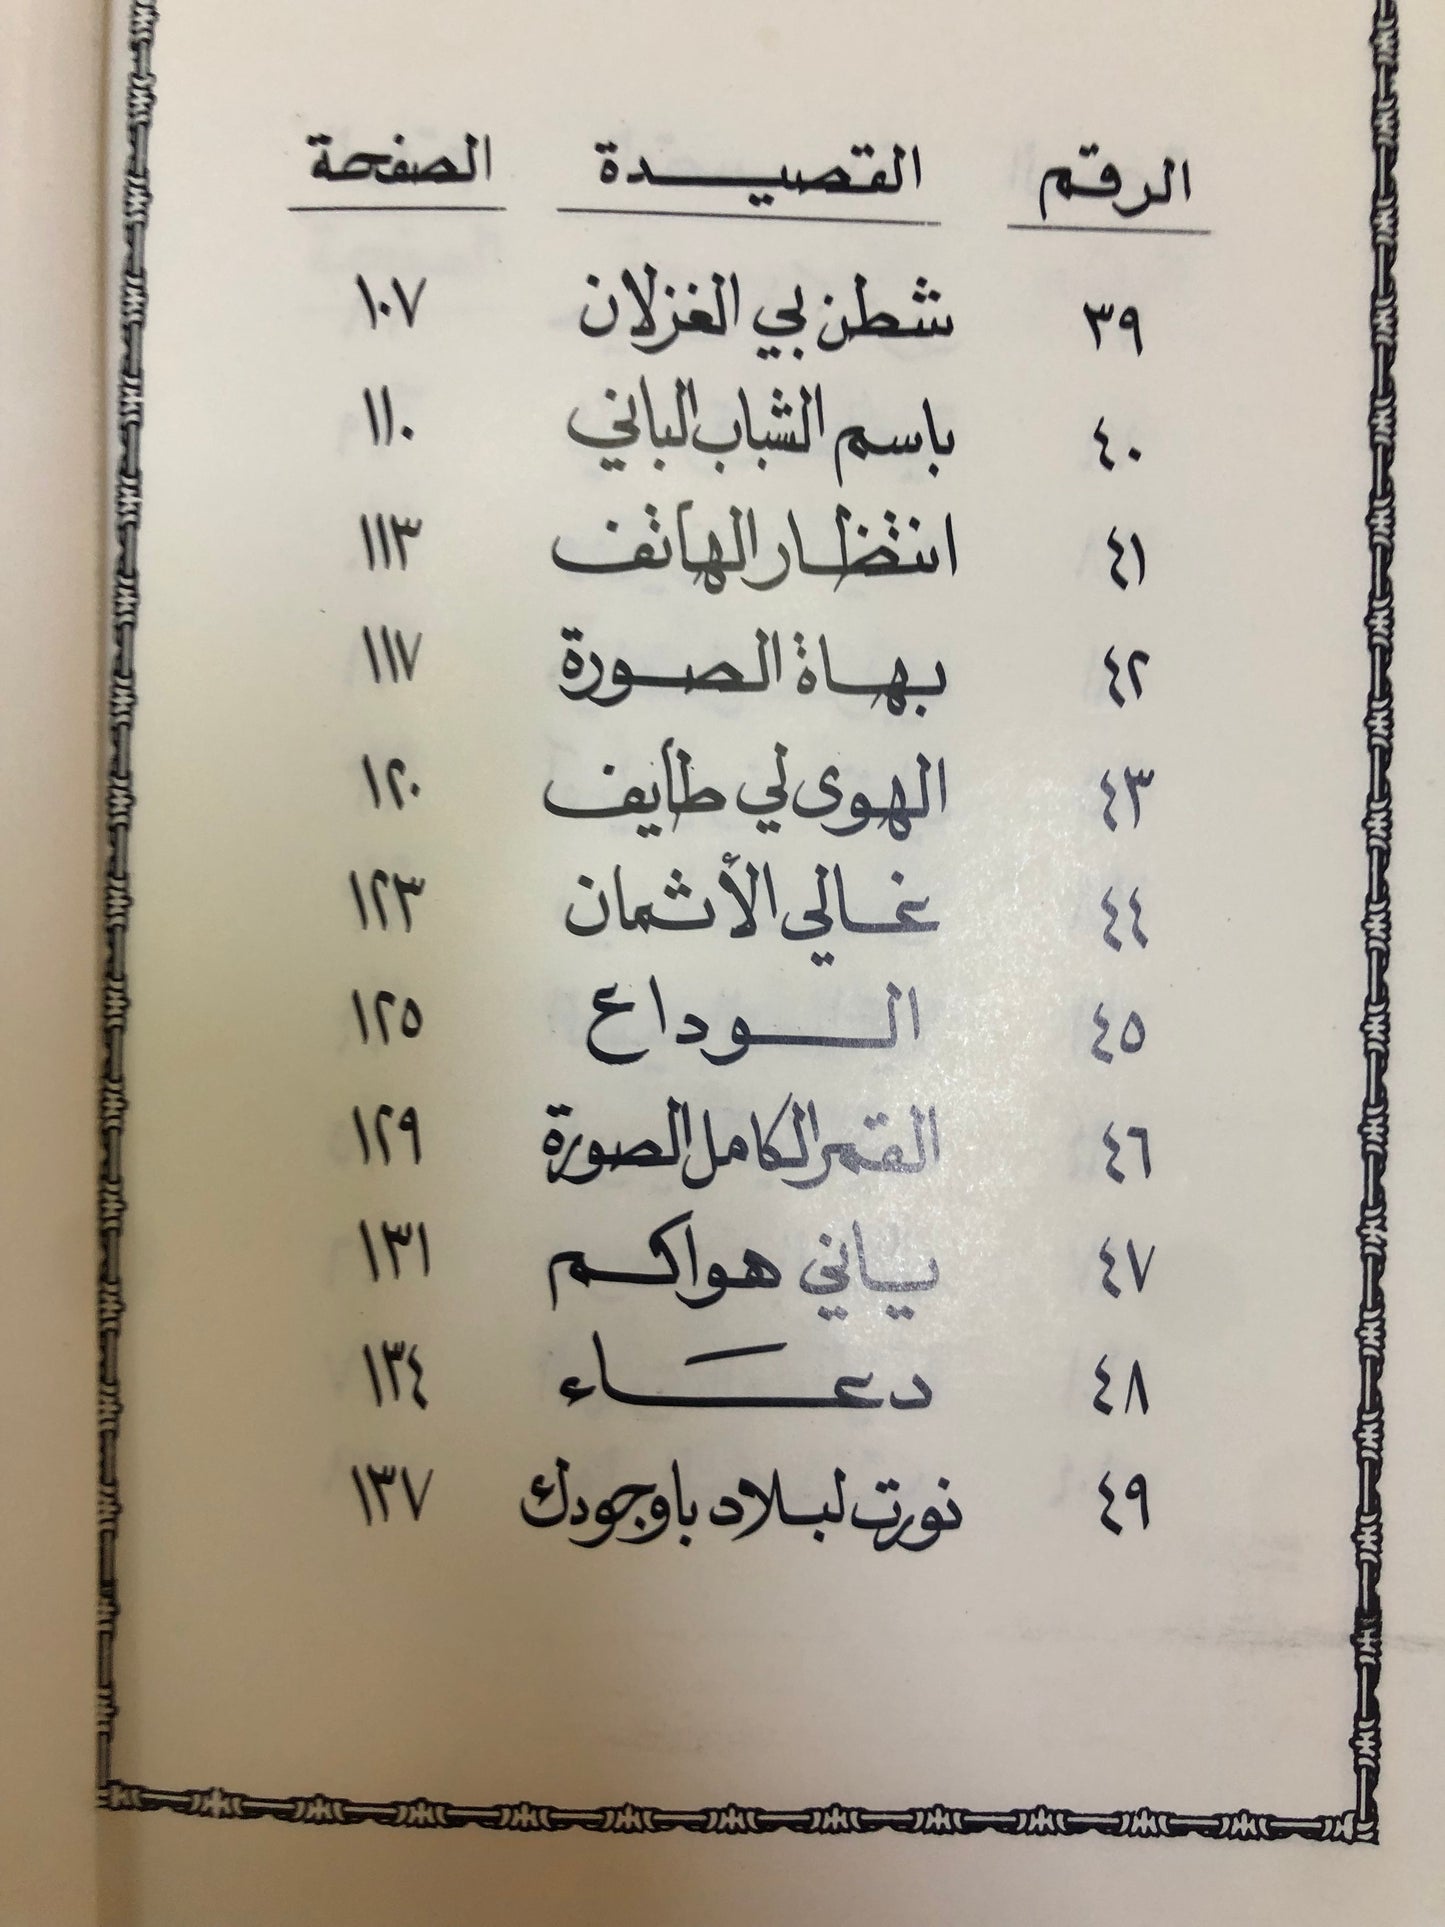 الرقم القصيدة الصفحة
٣٩ شطن بي الغزلان ١٠٧
٤٠ باسم الشباب الباني ١١٠
٤١ انتظار الهاتف ١١٣
٤٢ بهاة الصورة ١١٧
٤٣ الهوى لي طايف ١٢٠
٤٤ غالي الأثمان ١٢٣
٤٥ الوداع ١٢٥
٤٦ القمر الكامل الصورة ١٢٩
٤٧ ياني هواكم ١٣١
٤٨ دعاء ١٣٤
٤٩ نورت لبلاد باوجودك ١٣٧